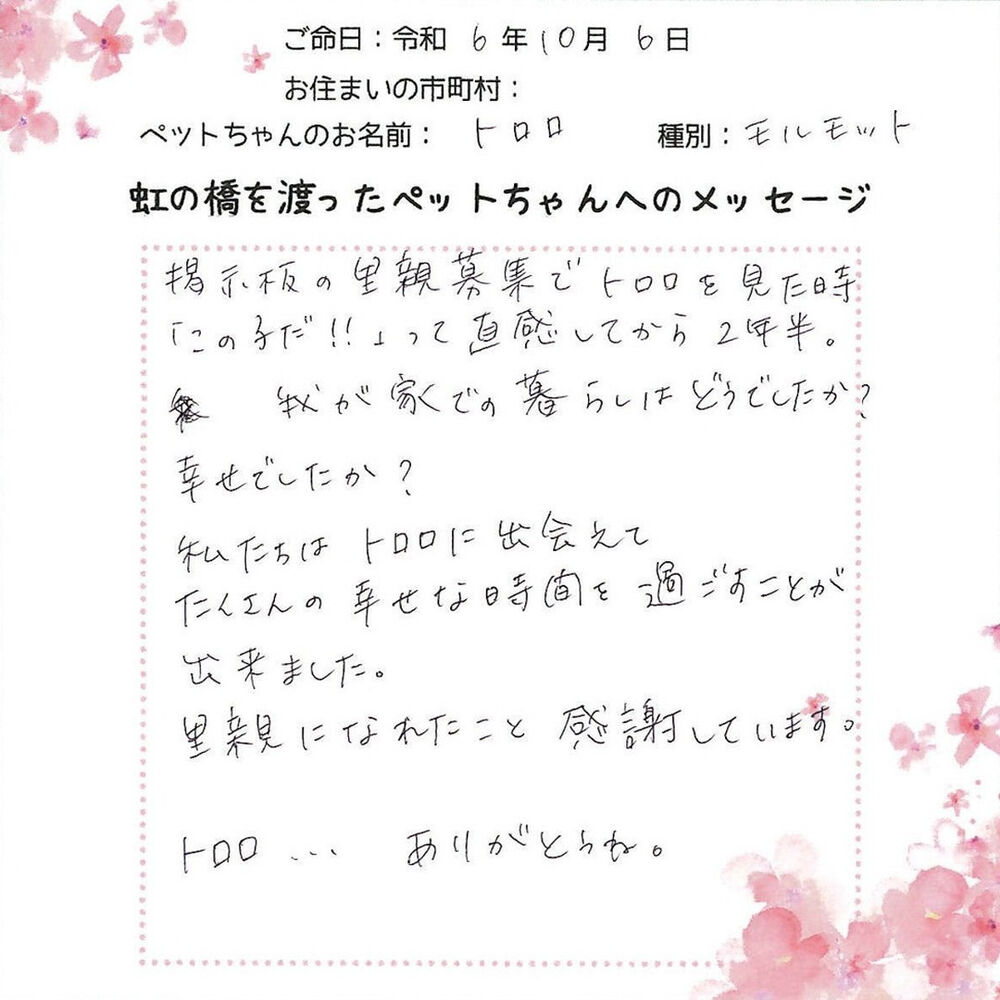 ご命日：令和 6 年 10 月 6 日
お住まいの市町村：
ペットちゃんのお名前： トロロ 種別：モルモット
虹の橋を渡ったペットちゃんへのメッセージ
掲示板の里親募集でトロロを見た時
「この子だ!!」って直感してから2年半。
我が家での暮らしはどうでしたか？
幸せでしたか？
私たちはトロロに出会えて
たくさんの幸せな時間を過ごすことが
出来ました。
里親になれたこと感謝しています。
トロロ... ありがとうね。